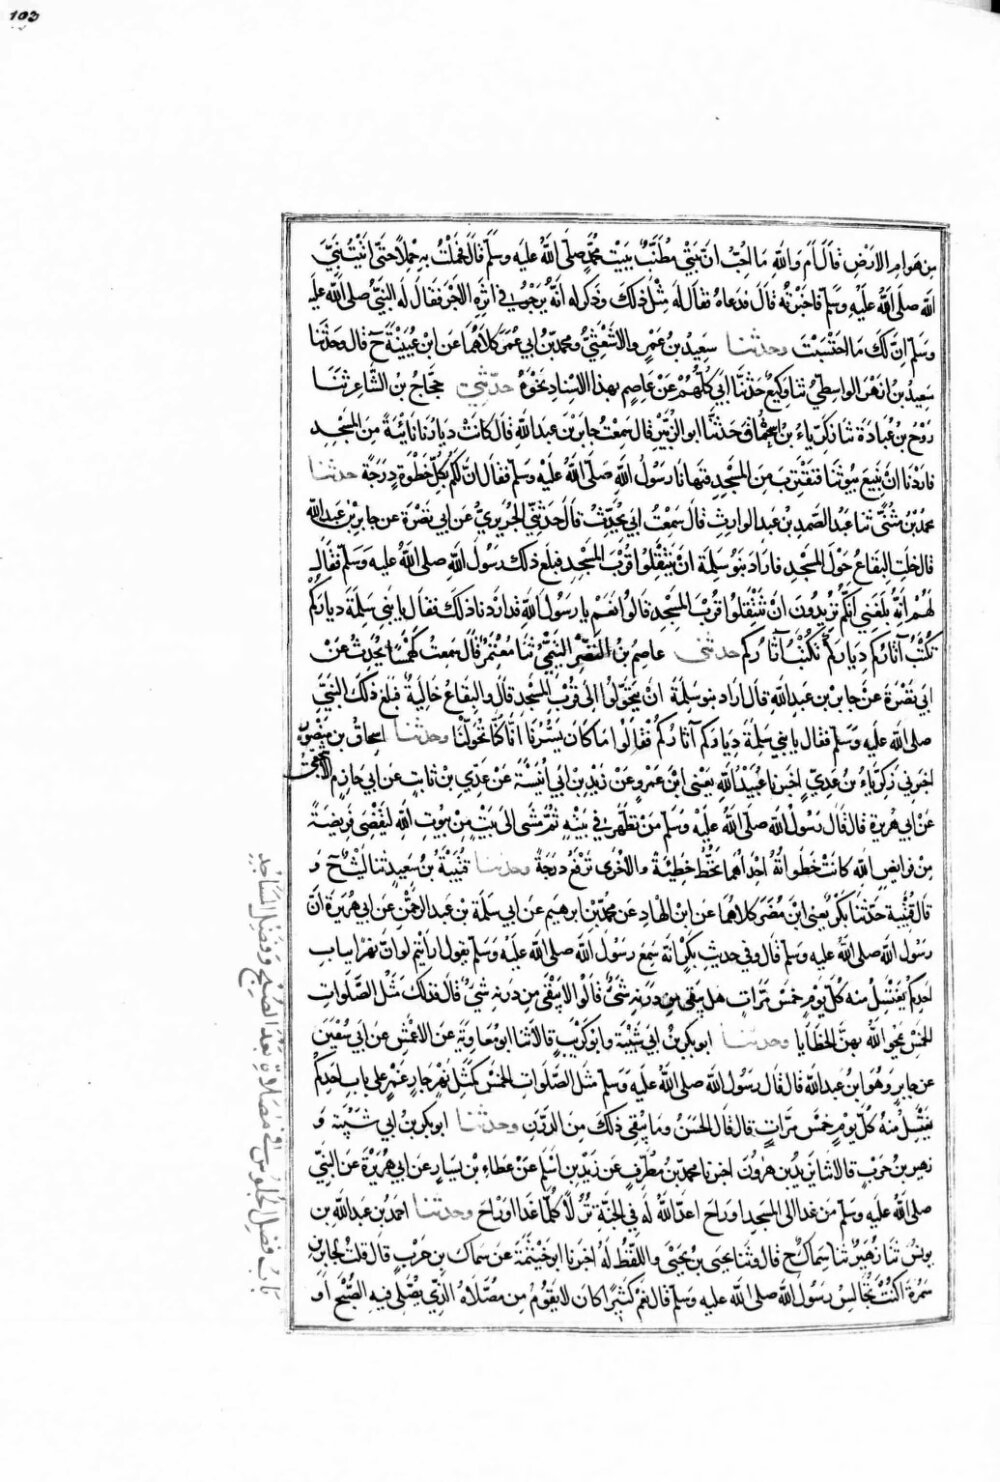 103
من هوام الارض قال أم والله ما احب ان بيتي مطنب ببيت محمد صلى الله عليه وسلم قال فحملت به حملا حتى اتيت نبي
الله صلى الله عليه وسلم فاخبرته قال فدعاه فقال له مثل ذلك وذكر له أنه يرجو في اثره الاجر فقال له النبي صلى الله عليه
وسلم ان لك ما احتسبت وحدثنا سعيد بن عمرو الاشعثي ومحمد بن ابي عمر كلاهما عن ابن عيينة ح قال وحدثنا
سعيد بن ازهر الواسطي ثنا وكيع حدثنا ابي كلهم عن عاصم بهذا الاسناد نحوه حدثني حجاج بن الشاعر ثنا
روح بن عبادة ثنا زكرياء بن اسحاق حدثنا ابو الزبير قال سمعت جابر بن عبد الله قال كانت ديارنا نائية من المسجد
فاردنا ان نبيع بيوتنا فنقترب من المسجد فنهانا رسول الله صلى الله عليه وسلم فقال ان لكم بكل خطوة درجة حدثنا
محمد بن مثنى ثنا عبد الصمد بن عبد الوارث قال سمعت ابي يحدث قال حدثني الجريري عن ابي نضرة عن جابر بن عبد الله
قال خلت البقاع حول المسجد فاراد بنو سلمة ان ينتقلوا قرب المسجد فبلغ ذلك رسول الله صلى الله عليه وسلم فقال
لهم انه بلغني انكم تريدون ان تنتقلوا قرب المسجد قالوا نعم يا رسول الله قد اردنا ذلك فقال يا بني سلمة دياركم
تكتب آثاركم دياركم تكتب آثاركم حدثني عاصم بن النضر التيمي ثنا معتمر قال سمعت كهمسا يحدث عن
ابي نضرة عن جابر بن عبد الله قال اراد بنو سلمة ان يتحولوا الى قرب المسجد قال والبقاع خالية فبلغ ذلك النبي
صلى الله عليه وسلم فقال يا بني سلمة دياركم آثاركم فقالوا ما كان يسرنا انا كنا تحولنا وحدثنا اسحاق بن منصور
اخبرني زكرياء بن عدي اخبرنا عبيد الله يعني ابن عمرو عن زيد بن ابي أنيسة عن عدي بن ثابت عن ابي حازم الاشجعي
عن ابي هريرة قال قال رسول الله صلى الله عليه وسلم من تطهر في بيته ثم مشى الى بيت من بيوت الله ليقضي فريضة
من فرايض الله كانت خطواته احداهما تحط خطيئة والاخرى ترفع درجة وحدثنا قتيبة بن سعيد ثنا ليث ح و
قال قتيبة حدثنا بكر يعني ابن مضر كلاهما عن ابن الهاد عن محمد بن ابرهيم عن ابي سلمة بن عبد الرحمن عن ابي هريرة ان
رسول الله صلى الله عليه وسلم قال وفي حديث بكر انه سمع رسول الله صلى الله عليه وسلم يقول ارايتم لو ان نهرا بباب
احدكم يغتسل منه كل يوم خمس مرات هل يبقى من درنه شئ قالوا لا يبقى من درنه شئ قال فذلك مثل الصلوات
الخمس يمحو الله بهن الخطايا وحدثنا ابو بكر بن ابي شيبة وابو كريب قالا ثنا ابو معاوية عن الاعمش عن ابي سفين
عن جابر وهو ابن عبد الله قال قال رسول الله صلى الله عليه وسلم مثل الصلوات الخمس كمثل نهر جار غمر على باب احدكم
يغتسل منه كل يوم خمس مرات قال قال الحسن وما يبقي ذلك من الدرن وحدثنا ابو بكر بن ابي شيبة و
زهير بن حرب قالا ثنا يزيد بن هرون اخبرنا محمد بن مطرف عن زيد بن اسلم عن عطاء بن يسار عن ابي هريرة عن النبي
صلى الله عليه وسلم من غدا الى المسجد او راح اعد الله له في الجنة نزلا كلما غدا او راح وحدثنا احمد بن عبد الله بن
يونس ثنا زهير ثنا سماك ح قال وثنا يحيى بن يحيى واللفظ له اخبرنا ابو خيثمة عن سماك بن حرب قال قلت لجابر بن
سمرة اكنت تجالس رسول الله صلى الله عليه وسلم قال نعم كثيرا كان لا يقوم من مصلاه الذي يصلي فيه الصبح او
باب فضل الجلوس في مصلاه بعد الصبح وفضل المساجد